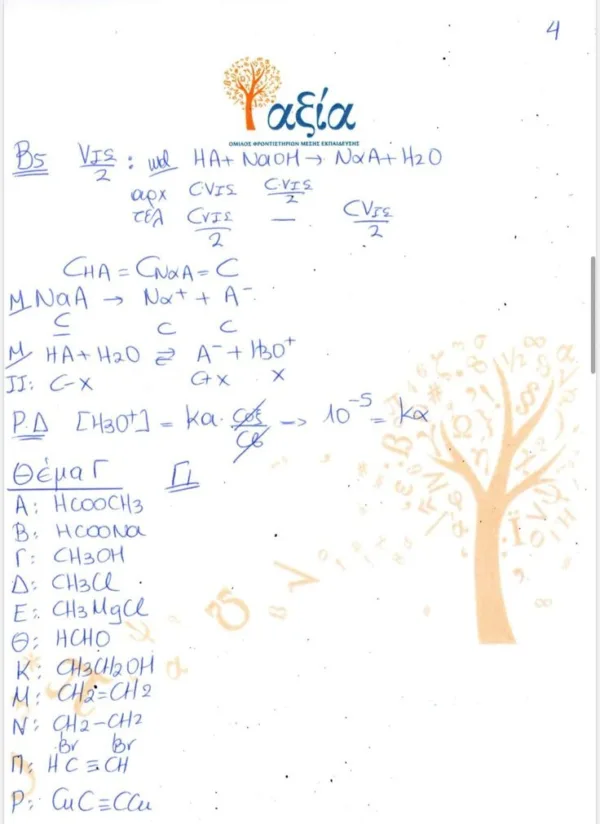 4
αξία
ΟΜΙΛΟΣ ΦΡΟΝΤΙΣΤΗΡΙΩΝ ΜΕΣΗΣ ΕΚΠΑΙΔΕΥΣΗΣ
B5 VΙΣ/2 : mol HA + NaOH → NaA + H2O
αρχ C·VΙΣ C·VΙΣ/2
τελ CVΙΣ/2 — CVΙΣ/2
CHA = CNaA = C
M NaA → Na+ + A-
C C C
M HA + H2O ⇌ A- + H3O+
II: C-x C+x x
P.Δ [H3O+] = Ka · Cοξ/Cβ --> 10^-5 = Ka
Θέμα Γ Γ1
A: HCOOCH3
B: HCOONa
Γ: CH3OH
Δ: CH3Cl
E: CH3MgCl
Θ: HCHO
K: CH3CH2OH
M: CH2=CH2
N: CH2-CH2
Br Br
Π: HC≡CH
P: CuC≡CCu